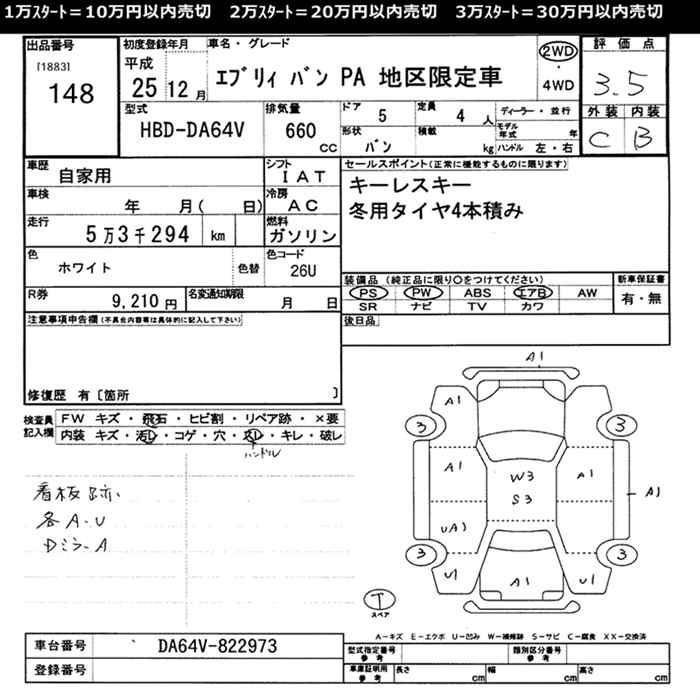 1万ｽﾀｰﾄ＝10万円以内売切　2万ｽﾀｰﾄ＝20万円以内売切　3万ｽﾀｰﾄ＝30万円以内売切
出品番号
[1883]
148
初度登録年月
平成
25 12 月
車名・グレード
ｴﾌﾞﾘｨ ﾊﾞﾝ PA 地区限定車
2WD
・
4WD
評価点
3.5
外装 内装
C B
型式
HBD-DA64V
排気量
660
CC
ドア
5
定員
4 人
形状
ﾊﾞﾝ
積載
kg
ディーラー・並行
モデル年式 年
ハンドル 左・右
車歴
自家用
シフト
IAT
車検
年 月( 日)
冷房
AC
走行
5万3千294 km
燃料
ガソリン
色
ホワイト
色替
色コード
26U
R券
9,210 円
名変通知期限
月 日
セールスポイント(正常に機能するものに限ります)
キーレスキー
冬用タイヤ4本積み
装備品 (純正品に限り○をつけてください)
新車保証書
PS PW ABS エアB AW
SR ナビ TV カワ
有・無
後日品
注意事項申告欄(不具合内容等は具体的に記入して下さい)
修復歴 有〔箇所 〕
検査員
記入欄
FW キズ・飛石・ヒビ割・リペア跡・×要
内装 キズ・汚レ・コゲ・穴・スレ・キレ・破レ
ハンドル
看板跡
各A.U
Dミラ-A
A1
A1
3 3
A1 W3 A1
S3
A1
UA1
3 3
U1 A1 U1
T
スペア
A-キズ E-エクボ U-凹み W-補修跡 S-サビ C-腐食 XX-交換済
車台番号
DA64V-822973
登録番号
型式指定番号
参考
類別区分番号
参考
車庫証明用
参考
長さ cm
幅 cm
高さ cm